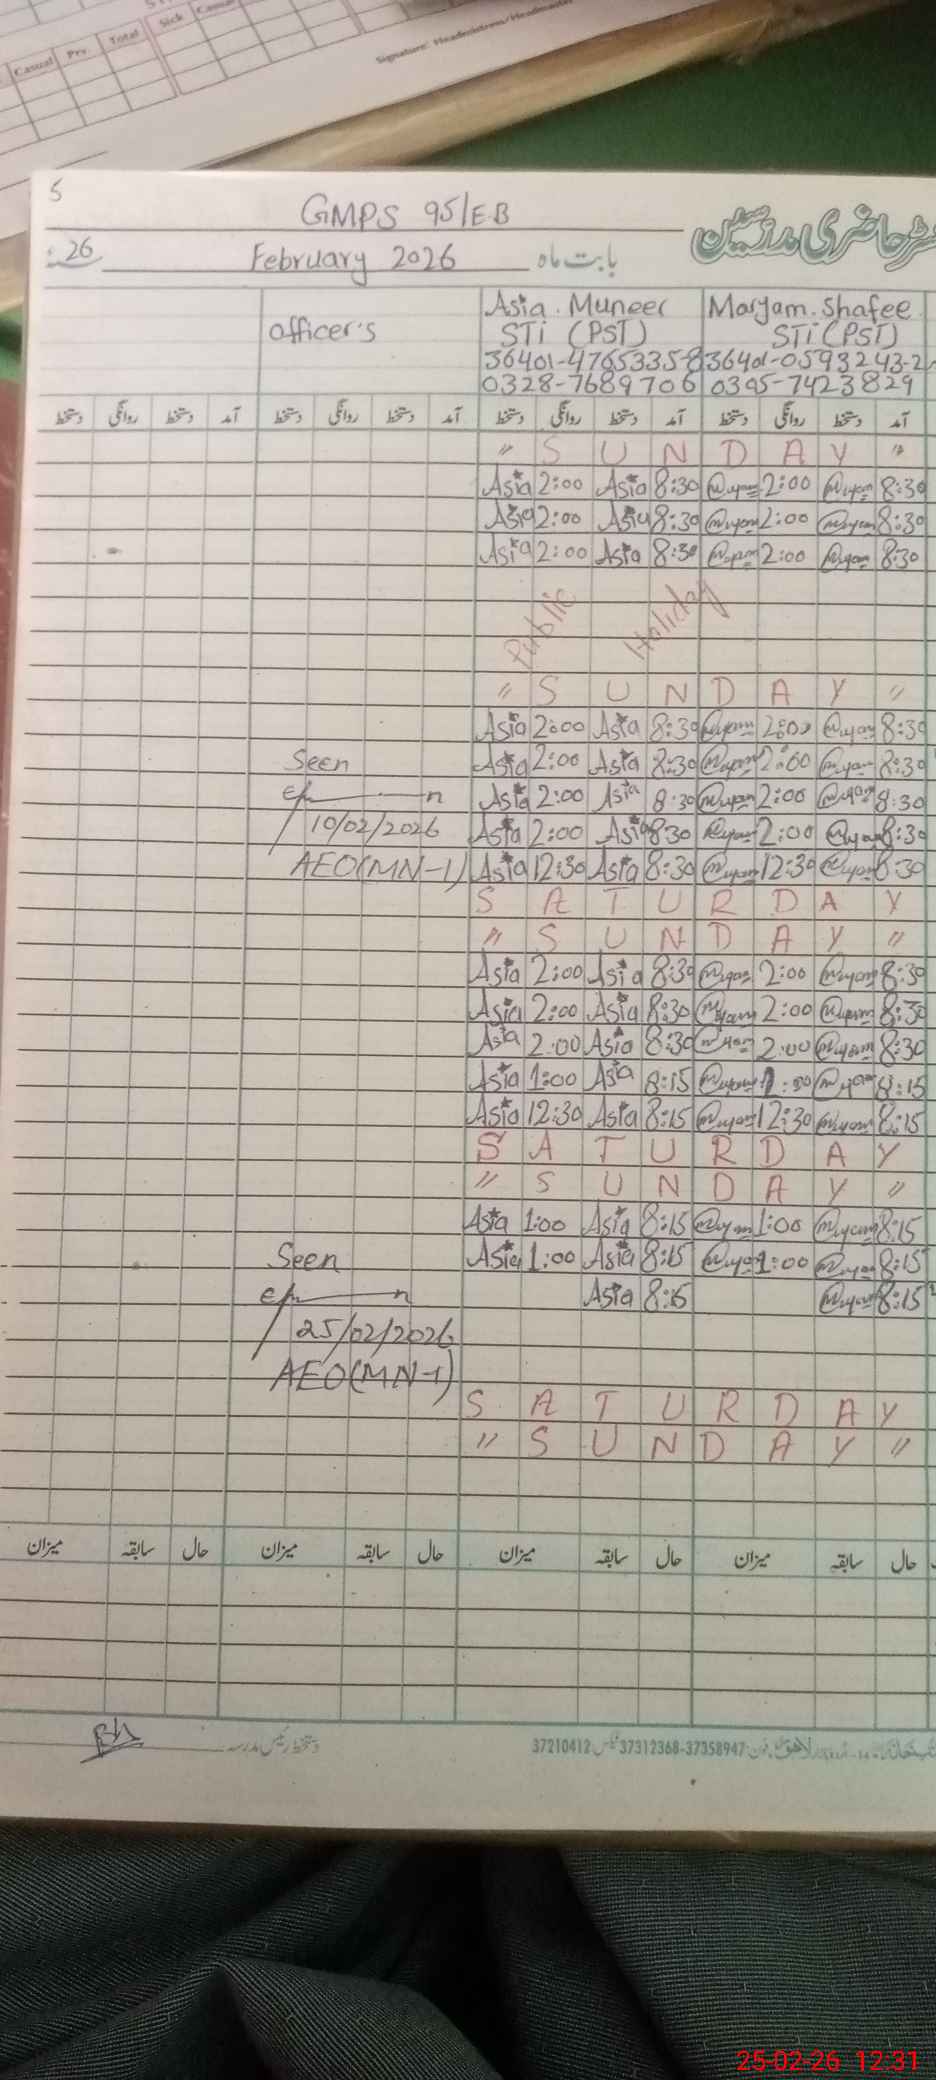 Casual Prv. Total Sick Casual
Signature: Headmistress/Headmaster
5
GMPS 95/EB
رجسٹر حاضری مدرسین
26
February 2026 بابت ماہ
officer's
Asia. Muneer Maryam. Shafee
STi (PST) STi (PST)
36401-4765335-8 36401-0593243-2
0328-7689706 0305-7423829
دستخط روانگی دستخط آمد دستخط روانگی دستخط آمد دستخط روانگی دستخط آمد دستخط روانگی دستخط آمد
" S U N D A Y "
Asia 2:00 Asia 8:30 2:00 8:30
Asia 2:00 Asia 8:30 2:00 8:30
Asia 2:00 Asia 8:30 2:00 8:30
Public Holiday
" S U N D A Y "
Asia 2:00 Asia 8:30 2:00 8:30
Seen Asia 2:00 Asia 8:30 2:00 8:30
Asia 2:00 Asia 8:30 2:00 8:30
10/02/2026 Asia 2:00 Asia 8:30 2:00 8:30
AEO(MN-1) Asia 12:30 Asia 8:30 12:30 8:30
S A T U R D A Y
" S U N D A Y "
Asia 2:00 Asia 8:30 2:00 8:30
Asia 2:00 Asia 8:30 2:00 8:30
Asia 2:00 Asia 8:30 2:00 8:30
Asia 1:00 Asia 8:15 8:15
Asia 12:30 Asia 8:15 12:30 8:15
S A T U R D A Y
" S U N D A Y "
Asia 1:00 Asia 8:15 1:00 8:15
Seen Asia 1:00 Asia 8:15 1:00 8:15
Asia 8:15 8:15
25/02/2026
AEO(MN-1)
S A T U R D A Y
" S U N D A Y "
میزان سابقہ حال میزان سابقہ حال میزان سابقہ حال میزان سابقہ حال
دستخط رئیس مدرسہ
لاھور فون: 37358947-37312368 فیکس 37210412
25-02-26 12:31